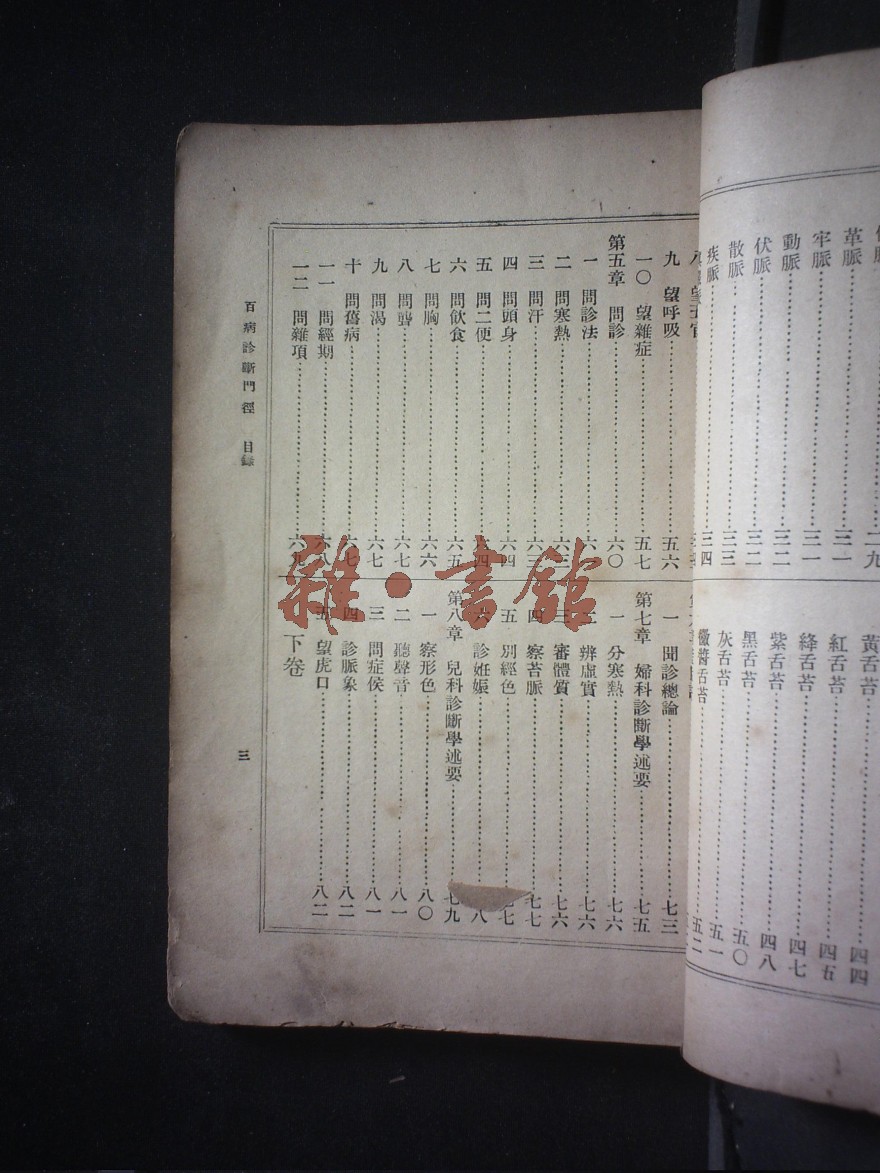 革脈⋯⋯三〇
牢脈⋯⋯三一
動脈⋯⋯三二
伏脈⋯⋯三二
散脈⋯⋯三三
疾脈⋯⋯三四
黃舌苔⋯⋯四四
紅舌苔⋯⋯四四
絳舌苔⋯⋯四五
紫舌苔⋯⋯四七
黑舌苔⋯⋯四八
灰舌苔⋯⋯五〇
黴醬舌苔⋯⋯五一
九 望呼吸⋯⋯五六
一〇 望雜症⋯⋯五七
第五章 問診⋯⋯六〇
一 問診法⋯⋯六
二 問寒熱⋯⋯六三
三 問汗⋯⋯六三
四 問頭身⋯⋯六四
五 問二便⋯⋯六四
六 問飲食⋯⋯六五
七 問胸⋯⋯六六
八 問聾⋯⋯六七
九 問渴⋯⋯六七
十 問舊病⋯⋯六七
一一 問經期⋯⋯六八
一二 問雜項⋯⋯六九
一 聞診總論⋯⋯七三
第七章 婦科診斷學述要⋯⋯七五
一 分寒熱⋯⋯七六
二 辨虛實⋯⋯七六
三 審體質⋯⋯七六
四 察苔脈⋯⋯七七
五 別經色⋯⋯七七
六 診妊娠⋯⋯八
第八章 兒科診斷學述要⋯⋯七九
一 察形色⋯⋯八〇
二 聽聲音⋯⋯八一
三 問症侯⋯⋯八一
四 診脈象⋯⋯八二
五 望虎口⋯⋯八二
下卷
百病診斷門徑 目錄
三
雜·書館